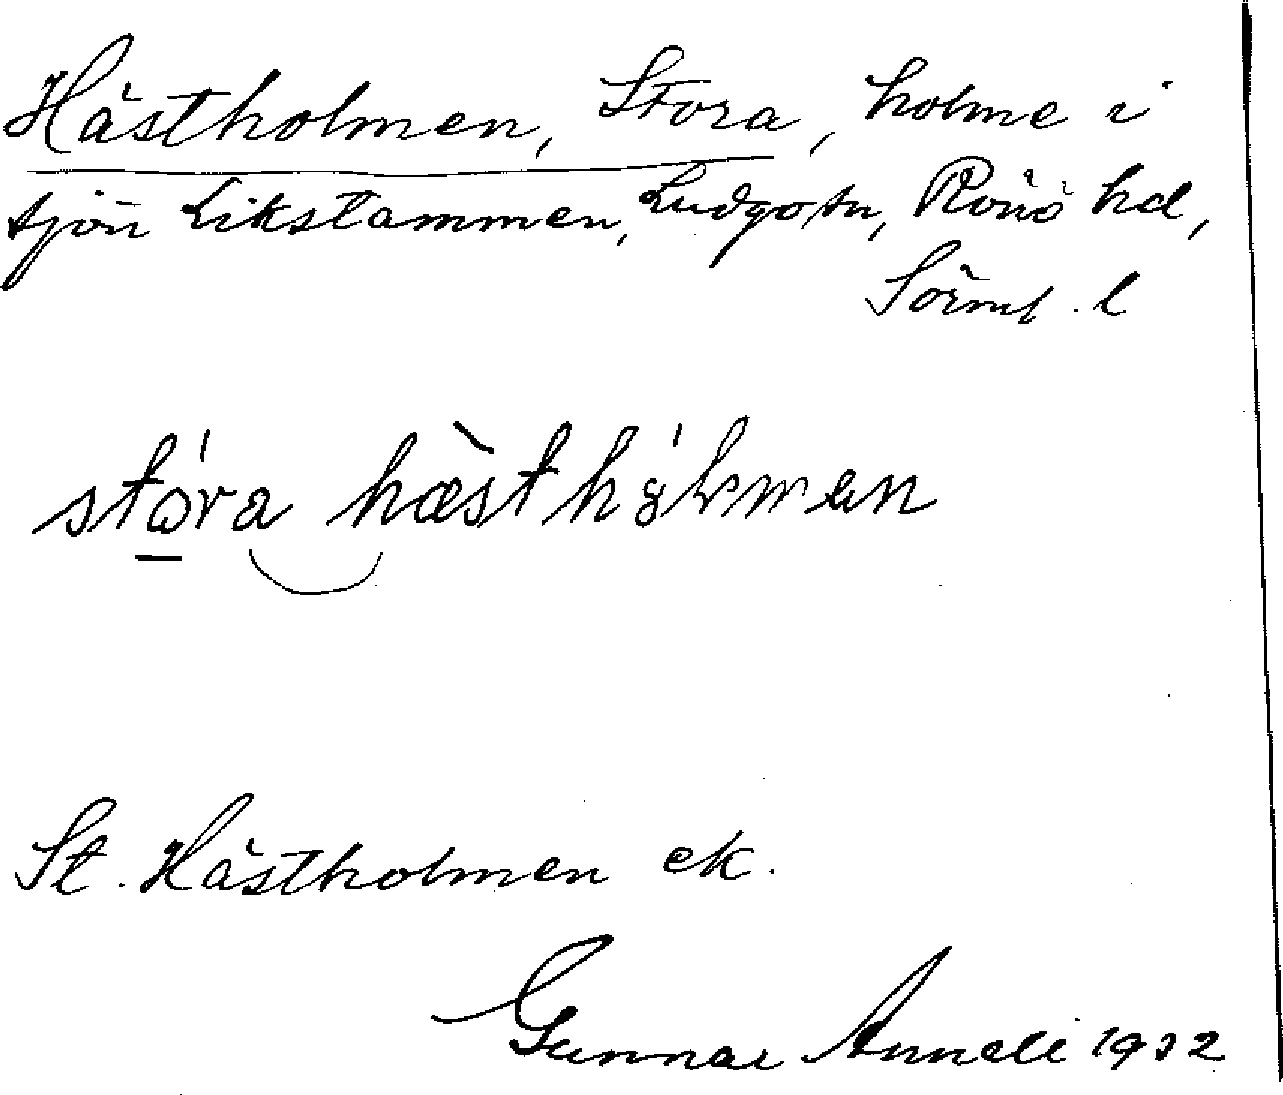 Hästholmen, Stora, holme i
sjön Likstammen, Ludgo sn, Rönö hd,
Sörml. l
stora hæsthålmen
St. Hästholmen ek.
Gunnar 1932